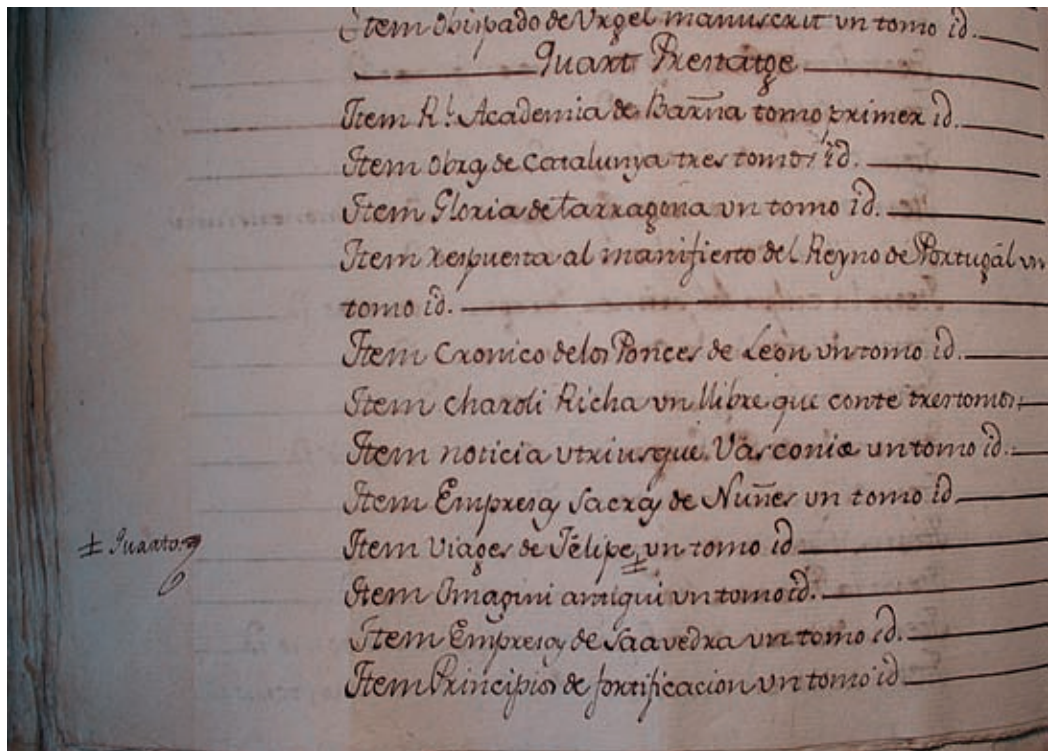 Item Obispado de Urgel manuscrit vn tomo id.
Quart Prestatge
Item Rl. Academia de Barña tomo primer id.
Item Obras de Catalunya tres tomos id.
Item Gloria de tarragona vn tomo id.
Item respuesta al manifiesto del Reyno de Portugàl vn
tomo id.
Item Cronico delos Ponces de Leon vn tomo id.
Item charoli Richa vn llibre que conte tres tomos
Item noticia vtriusque Vasconiæ un tomo id.
Item Empresas Sacras de Nuñes vn tomo id
± Quarto
Item Viages de Felipe ± vn tomo id
Item Imagini antiqui vn tomo id.
Item Empresas de Saavedra vn tomo id.
Item Principios de fortificacion vn tomo id